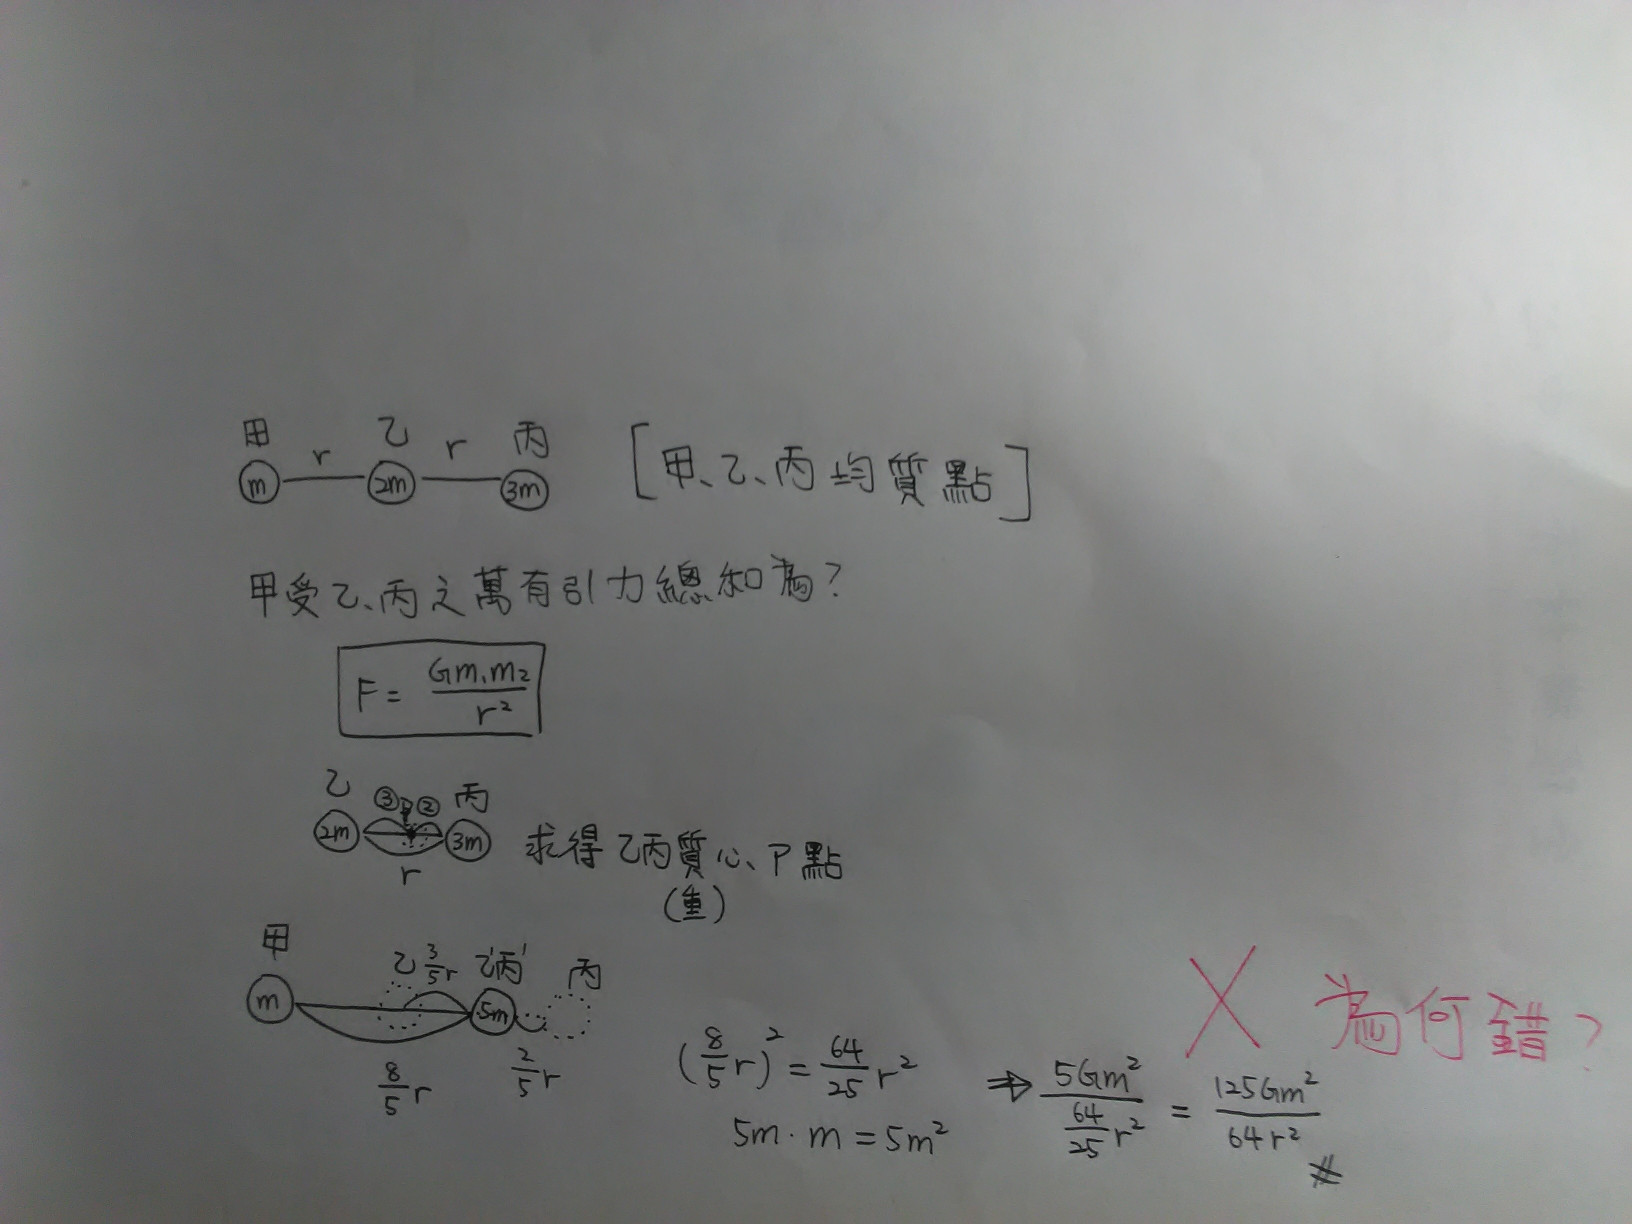 甲 乙 丙
m r 2m r 3m [甲、乙、丙均質點]
甲受乙、丙之萬有引力總和為?
F = Gm₁m₂/r²
乙 ③ P ② 丙
2m 3m 求得乙丙質心、P點
r (重)
甲 乙 3/5r 乙'丙' 丙
m 5m
8/5r 2/5r
(8/5r)² = 64/25r² ⇒ 5Gm²/(64/25r²) = 125Gm²/64r²
5m·m = 5m²
X 為何錯?